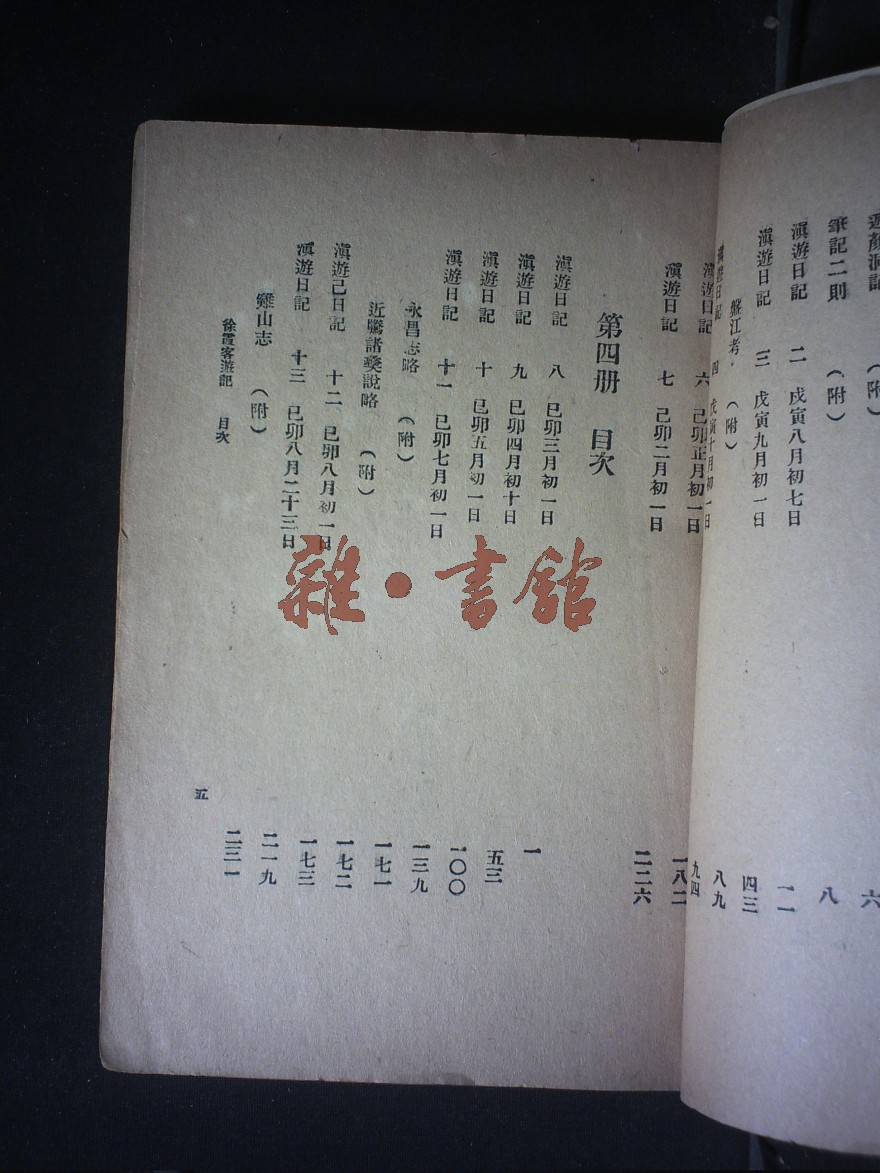 顏洞記 （附） 六
筆記二則 （附） 八
滇遊日記 二 戊寅八月初七日 一一
滇遊日記 三 戊寅九月初一日 四三
盤江考 （附） 八九
滇遊日記 四 戊寅十月初一日 九四
滇遊日記 六 己卯正月初一日 一八二
滇遊日記 七 己卯二月初一日 二二六
第四册 目次
滇遊日記 八 己卯三月初一日 一
滇遊日記 九 己卯四月初十日 五三
滇遊日記 十 己卯五月初一日 一〇〇
滇遊日記 十一 己卯七月初一日 一三九
永昌志略 （附） 一七一
近騰諸彝說略 （附） 一七二
滇遊己日記 十二 己卯八月初一日 一七三
滇遊日記 十三 己卯八月二十三日 二一九
雞山志 （附） 二三一
徐霞客遊記 目次 五
雜·書館